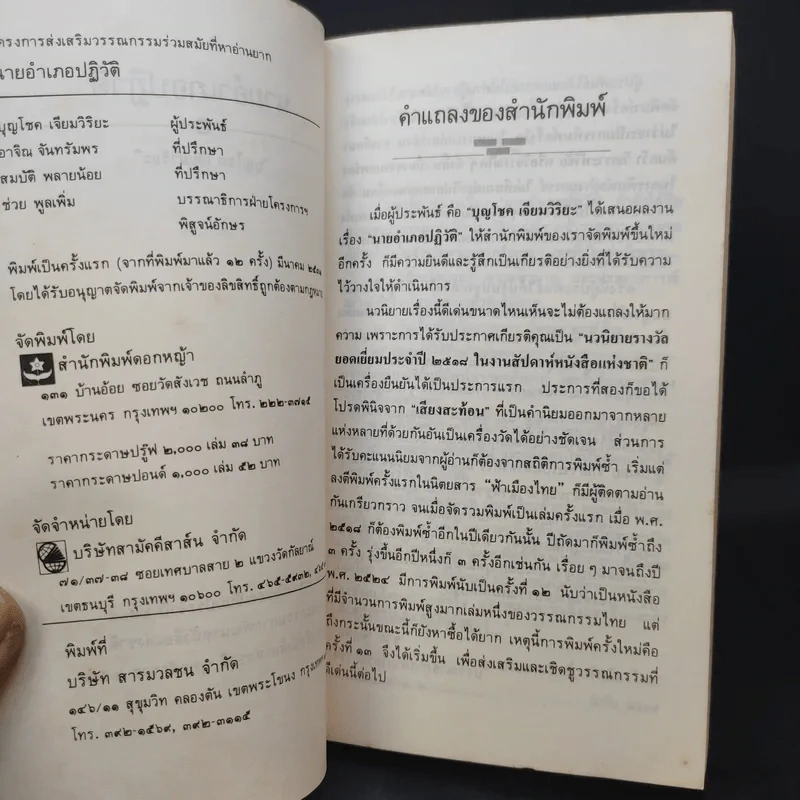 โครงการส่งเสริมวรรณกรรมร่วมสมัยที่หาอ่านยาก
นายอำเภอปฏิวัติ
บุญโชค เจียมวิริยะ ผู้ประพันธ์
อาจิณ จันทรัมพร ที่ปรึกษา
สมบัติ พลายน้อย ที่ปรึกษา
ช่วย พูลเพิ่ม บรรณาธิการฝ่ายโครงการฯ
พิสูจน์อักษร
พิมพ์เป็นครั้งแรก (จากที่พิมพ์มาแล้ว ๑๒ ครั้ง) มีนาคม
โดยได้รับอนุญาตจัดพิมพ์จากเจ้าของลิขสิทธิ์ถูกต้องตามกฎหมาย
จัดพิมพ์โดย
สำนักพิมพ์ดอกหญ้า
๑๓๑ บ้านอ้อย ซอยวัดสังเวช ถนนลำภู
เขตพระนคร กรุงเทพฯ ๑๐๒๐๐ โทร. ๒๒๒-๓๗๑๕
ราคากระดาษปรู๊ฟ ๒,๐๐๐ เล่ม ๓๘ บาท
ราคากระดาษปอนด์ ๑,๐๐๐ เล่ม ๕๒ บาท
จัดจำหน่ายโดย
บริษัทสามัคคีสาส์น จำกัด
๗๑/๓๗-๓๘ ซอยเทศบาลสาย ๒ แขวงวัดกัลยาณ์
เขตธนบุรี กรุงเทพฯ ๑๐๖๐๐ โทร. ๔๖๕-๕๙๓๒,
พิมพ์ที่
บริษัท สารมวลชน จำกัด
๑๔๖/๑๑ สุขุมวิท คลองตัน เขตพระโขนง กรุงเทพฯ
โทร. ๓๙๒-๑๕๖๙, ๓๙๒-๓๑๑๕
คำแถลงของสำนักพิมพ์
เมื่อผู้ประพันธ์ คือ “บุญโชค เจียมวิริยะ” ได้เสนอผลงาน
เรื่อง “นายอำเภอปฏิวัติ” ให้สำนักพิมพ์ของเราจัดพิมพ์ขึ้นใหม่
อีกครั้ง ก็มีความยินดีและรู้สึกเป็นเกียรติอย่างยิ่งที่ได้รับความ
ไว้วางใจให้ดำเนินการ
นวนิยายเรื่องนี้ดีเด่นขนาดไหนเห็นจะไม่ต้องแถลงให้มาก
ความ เพราะการได้รับประกาศเกียรติคุณเป็น “นวนิยายรางวัล
ยอดเยี่ยมประจำปี ๒๕๑๘ ในงานสัปดาห์หนังสือแห่งชาติ” ก็
เป็นเครื่องยืนยันได้เป็นประการแรก ประการที่สองก็ขอได้
โปรดพินิจจาก “เสียงสะท้อน” ที่เป็นคำนิยมออกมาจากหลาย
แห่งหลายที่ด้วยกันอันเป็นเครื่องวัดได้อย่างชัดเจน ส่วนการ
ได้รับคะแนนนิยมจากผู้อ่านก็ต้องจากสถิติการพิมพ์ซ้ำ เริ่มแต่
ลงตีพิมพ์ครั้งแรกในนิตยสาร “ฟ้าเมืองไทย” ก็มีผู้ติดตามอ่าน
กันเกรียวกราว จนเมื่อจัดรวมพิมพ์เป็นเล่มครั้งแรก เมื่อ พ.ศ.
๒๕๑๘ ก็ต้องพิมพ์ซ้ำอีกในปีเดียวกันนั้น ปีถัดมาก็พิมพ์ซ้ำถึง
๓ ครั้ง รุ่งขึ้นอีกปีหนึ่งก็ ๓ ครั้งอีกเช่นกัน เรื่อย ๆ มาจนถึงปี
พ.ศ. ๒๕๒๔ มีการพิมพ์นับเป็นครั้งที่ ๑๒ นับว่าเป็นหนังสือ
ที่มีจำนวนการพิมพ์สูงมากเล่มหนึ่งของวรรณกรรมไทย แต่
ถึงกระนั้นขณะนี้ก็ยังหาซื้อได้ยาก เหตุนี้การพิมพ์ครั้งใหม่คือ
ครั้งที่ ๑๓ จึงได้เริ่มขึ้น เพื่อส่งเสริมและเชิดชูวรรณกรรมที่
ดีเด่นนี้ต่อไป